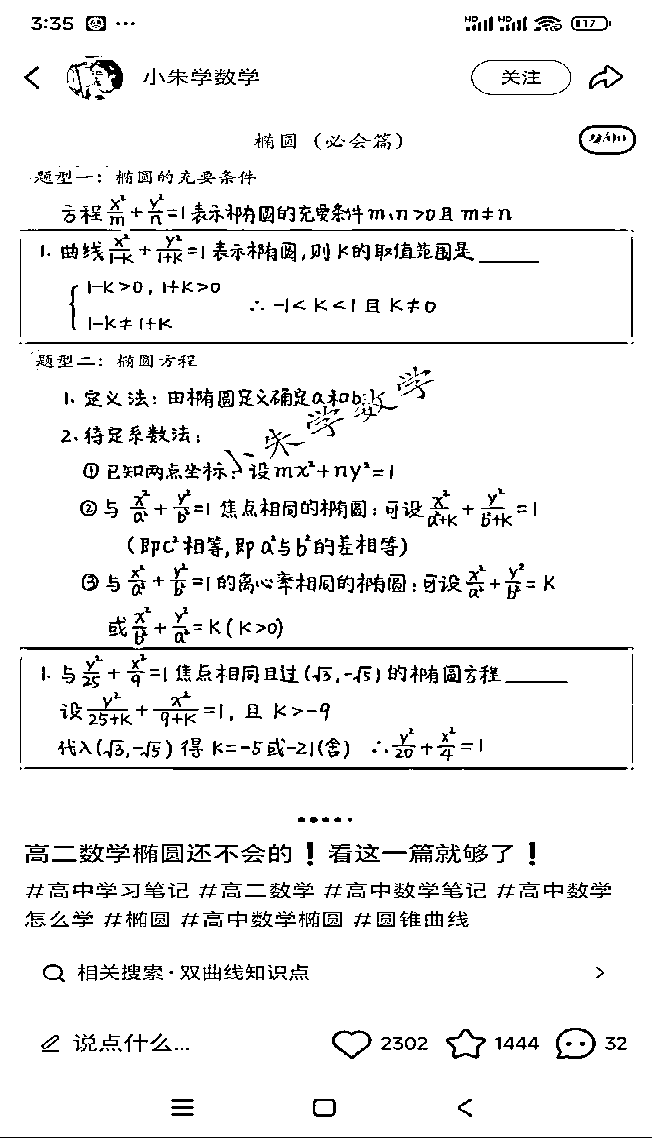 3:35 ... HD HD 17
小朱学数学 关注
椭圆（必会篇）
题型一：椭圆的充要条件
方程x²/m + y²/n =1表示椭圆的充要条件m、n>0且m≠n
1. 曲线x²/1-K + y²/1+K =1表示椭圆，则K的取值范围是____
{ 1-K>0，1+K>0
1-K≠1+K
∴ -1<K<1且K≠0
题型二：椭圆方程
1. 定义法：由椭圆定义确定a和b
2. 待定系数法：
小朱学数学
①已知两点坐标：设mx²+ny²=1
②与 x²/a² + y²/b² =1 焦点相同的椭圆：可设 x²/a²+K + y²/b²+K =1
（即c²相等，即a²与b²的差相等）
③与 x²/a² + y²/b² =1的离心率相同的椭圆：可设 x²/a² + y²/b² = K
或 x²/b² + y²/a² = K（K>0）
1. 与 y²/25 + x²/9 =1焦点相同且过（√3，-√5）的椭圆方程____
设 y²/25+K + x²/9+K =1，且 K>-9
代入（√3，-√5）得 K=-5或-21（舍） ∴ y²/20 + x²/4 =1
高二数学椭圆还不会的❗看这一篇就够了❗
#高中学习笔记 #高二数学 #高中数学笔记 #高中数学
怎么学 #椭圆 #高中数学椭圆 #圆锥曲线
相关搜索·双曲线知识点 >
说点什么... 2302 1444 32